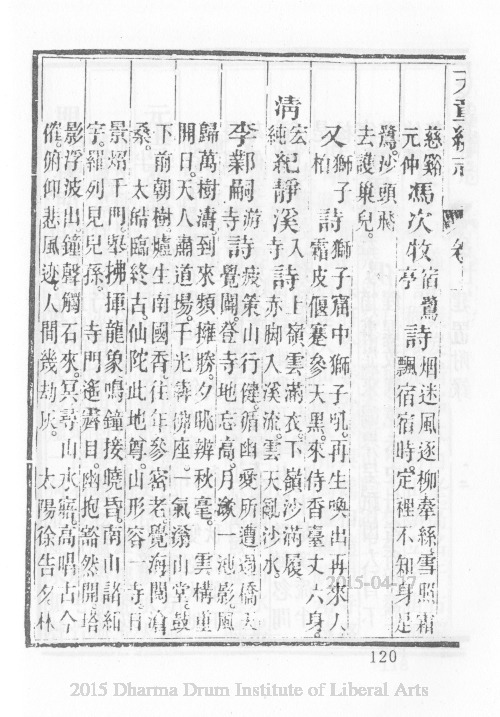 天童續志 卷
慈谿馮次牧宿鷺亭詩烟迷風逐柳牽絲雪照霜
元仲飄宿宿時定裡不知身是
鷺沙頭
去護巢兒
又獅子柏詩獅子窟中獅子吼再生喚出再來人
霜皮偃蹇參天黑來侍香臺丈六身
清宏純紀靜溪入寺詩上嶺雲滿衣下嶺沙滿履
赤脚入溪流雲天亂沙水
李鄴嗣游寺詩疲策山行健循幽愛所遭橋
覺闍登寺地忘高月一池影風
歸萬樹濤到來頻擁勝夕眺辨秋毫 雲構重
開日天人肅道場千光壽佛座一氣滃山堂鼓
下前朝樹爐生南國香往年參密老覺海閱滄
桑 太皓臨終古仙陀此地尊山形容一寺日
景熠千門拂揮龍象鳴鐘接曉昏南山諸細
宇羅列見兒孫 寺門遙霽目幽抱豁然開塔
影浮波出鐘聲觸石來冥尋山水窟高唱古今
催俯仰悲風迹人間幾劫灰 太陽徐告夕林
120
2015-04-27
2015 Dharma Drum Institute of Liberal Arts